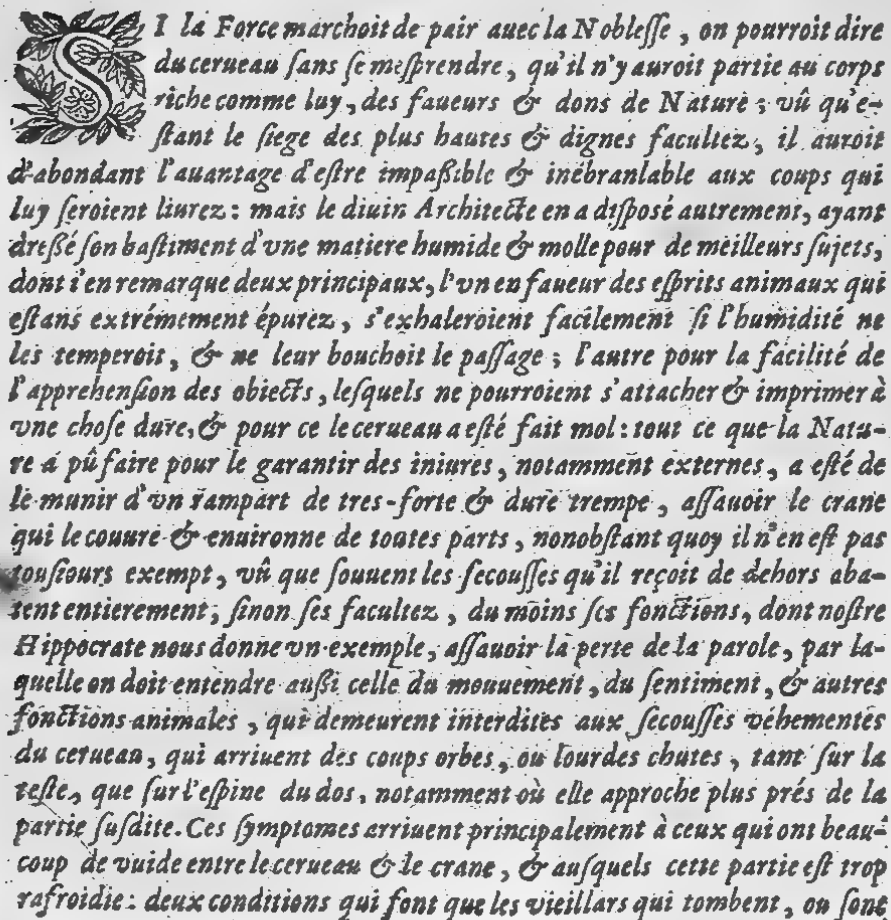 SI la Force marchoit de pair auec la Noblesse, on pourroit dire
du cerueau sans se mesprendre, qu'il n'y auroit partie au corps
riche comme luy, des faueurs & dons de Nature; vû qu'e-
stant le siege des plus hautes & dignes facultez, il auroit
d'abondant l'auantage d'estre impaßible & inébranlable aux coups qui
luy seroient liurez: mais le diuin Architecte en a disposé autrement, ayant
dreßé son bastiment d'vne matiere humide & molle pour de meilleurs sujets,
dont i'en remarque deux principaux, l'vn en faueur des esprits animaux qui
estans extrémement épurez, s'exhaleroient facilement si l'humidité ne
les temperoit, & ne leur bouchoit le passage; l'autre pour la facilité de
l'apprehension des obiects, lesquels ne pourroient s'attacher & imprimer à
vne chose dure, & pour ce le cerueau a esté fait mol: tout ce que la Natu-
re a pû faire pour le garantir des iniures, notamment externes, a esté de
le munir d'vn rampart de tres-forte & dure trempe, assauoir le crane
qui le couure & enuironne de toutes parts, nonobstant quoy il n'en est pas
tousiours exempt, vû que souuent les secousses qu'il reçoit de dehors aba-
tent entierement, sinon ses facultez, du moins ses fonctions, dont nostre
Hippocrate nous donne vn exemple, assauoir la perte de la parole, par la-
quelle on doit entendre außi celle du mouuement, du sentiment, & autres
fonctions animales, qui demeurent interdites aux secousses véhementes
du cerueau, qui arriuent des coups orbes, ou lourdes chutes, tant sur la
teste, que sur l'espine du dos, notamment où elle approche plus prés de la
partie susdite. Ces symptomes arriuent principalement à ceux qui ont beau-
coup de vuide entre le cerueau & le crane, & ausquels cette partie est trop
rafroidie: deux conditions qui font que les vieillars qui tombent, ou sont